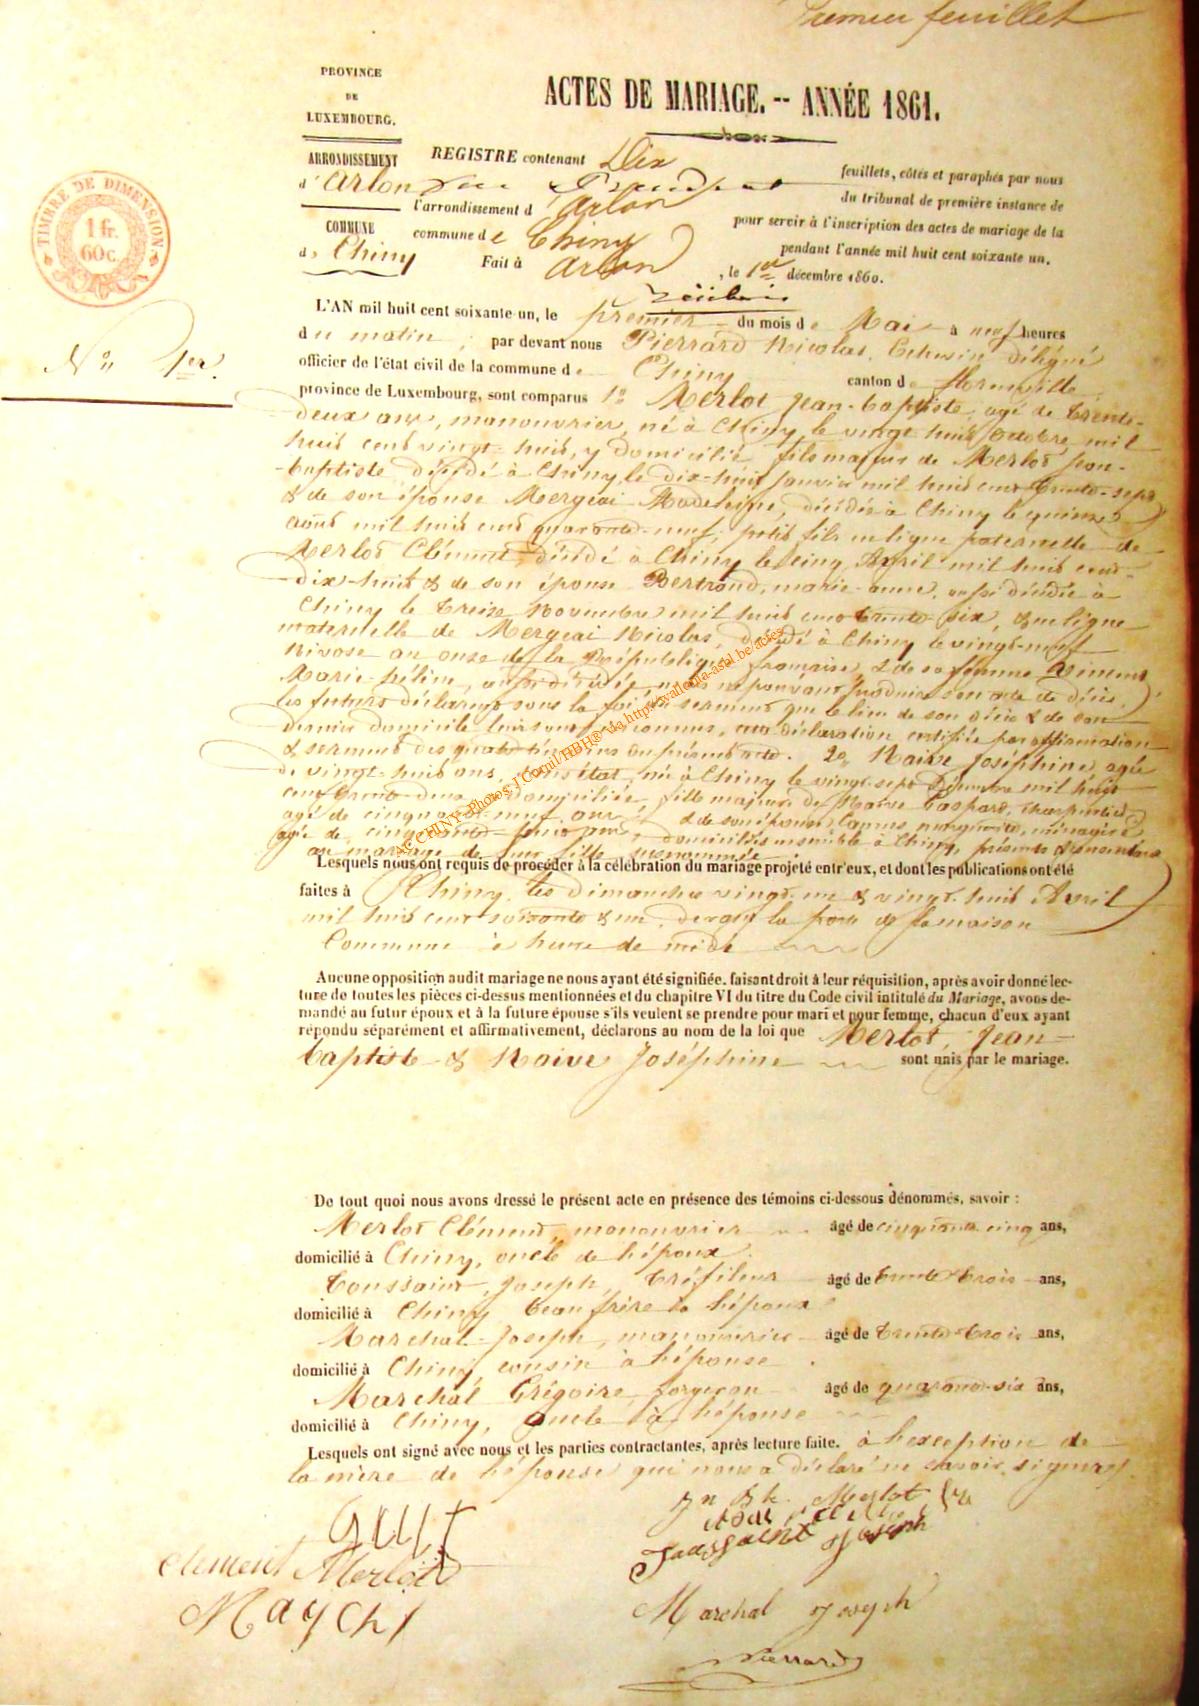 Premier feuillet
PROVINCE
DE
LUXEMBOURG.
ACTES DE MARIAGE. -- ANNÉE 1861.
ARRONDISSEMENT
d'Arlon
COMMUNE
de Chiny
REGISTRE contenant Dix feuillets, côtés et paraphés par nous
du tribunal de première instance de
l'arrondissement d'Arlon pour servir à l'inscription des actes de mariage de la
commune de Chiny pendant l'année mil huit cent soixante un.
Fait à Arlon, le 1er décembre 1860.
TIMBRE DE DIMENSION
1 fr.
60 c.
No 1er.
L'AN mil huit cent soixante-un, le premier du mois de Mai à neuf heures
du matin, par devant nous Pierrard Nicolas, Echevin délégué
officier de l'état civil de la commune de Chiny canton de florenville
province de Luxembourg, sont comparus 1o Merlot Jean-baptiste, agé de trente-
deux ans, manouvrier, né à Chiny le vingt-huit Octobre mil
huit cent vingt-huit, y domicilié, fils majeur de Merlot Jean-
baptiste, décédé à Chiny le dix-huit Janvier mil huit cent trente-sept
& de son épouse Mergeai Madeleine, décédée à Chiny le quinze
août mil huit cent quarante-neuf, petit fils en ligne paternelle de
Merlot Clément décédé à Chiny le cinq Avril mil huit cent
dix-huit & de son épouse Bertrand, marie-anne, aussi décédée à
Chiny le treize Novembre mil huit cent trente-six, & en ligne
maternelle de Mergeai Nicolas, décédé à Chiny le vingt-neuf
Nivose an onze de la République française, & de sa femme
Marie-, aussi décédée, mais ne pouvant produire son acte de décès,
les futurs déclarent sous la foi du serment que le lieu de son décès & de son
dernier domicile leur sont inconnus, cette déclaration certifiée par affirmation
& serment des quatre témoins du présent acte. 2o Naive Joséphine, agée
de vingt-huit ans, sans état, née à Chiny le vingt-sept mil huit
cent trente-deux, domiciliée, fille majeure de Naive Gaspard, charpentier
agé de cinquante-neuf ans & de son épouse marguerite, ménagère
agée de cinquante- ans, domiciliés ensemble à Chiny, présents & consentans
au mariage de leur fille susnommée
Lesquels nous ont requis de procéder à la célébration du mariage projeté entr'eux, et dont les publications ont été
faites à Chiny, les dimanches vingt-un & vingt-huit Avril
mil huit cent soixante & un, devant la porte de la maison
Commune à heure de midi
Aucune opposition audit mariage ne nous ayant été signifiée, faisant droit à leur réquisition, après avoir donné lec-
ture de toutes les pièces ci-dessus mentionnées et du chapitre VI du titre du Code civil intitulé du Mariage, avons de-
mandé au futur époux et à la future épouse s'ils veulent se prendre pour mari et pour femme, chacun d'eux ayant
répondu séparément et affirmativement, déclarons au nom de la loi que Merlot, Jean-
baptiste & Naive Joséphine sont unis par le mariage.
De tout quoi nous avons dressé le présent acte en présence des témoins ci-dessous dénommés, savoir :
Merlot Clément, manouvrier âgé de cinquante cinq ans,
domicilié à Chiny, oncle de l'époux
Toussaint, Joseph, tréfileur âgé de trente-trois ans,
domicilié à Chiny, beau frère à l'époux
Marchal Joseph, manouvrier âgé de trente-trois ans,
domicilié à Chiny, cousin à l'épouse
Marchal Grégoire, forgeron âgé de quarante-six ans,
domicilié à Chiny, oncle à l'épouse
Lesquels ont signé avec nous et les parties contractantes, après lecture faite. à l'exception de
la mère de l'épouse qui nous a déclaré ne savoir signer.
Jn Bte Merlot
Toussaint Joseph
Clément Merlot
Marchal Joseph
Pierrard
AC CHINY-Photos: J.Cornil/HBH® via http://wallonia-asbl.be/actes